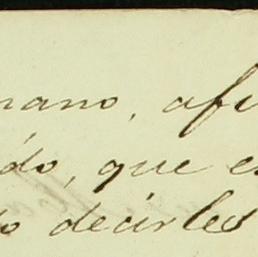 mano, afi
ido, que es
o decirles